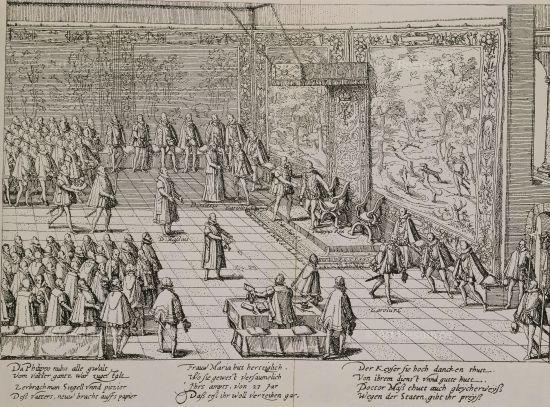 Carolus
Da Philipps nuhn alle gwalt
Vom vatter gantz war
Zerbrach man Siegell vnnd pitzier
Deß vatters, neuw bracht auffs papier
Frauw Maria batt hertzlich
Wo sie gewest versaumlich
Ihrs ampts, von 23 Jar
Daß eß ihr woll verzeihen gar.
Der Keyser sie hoch dancken thutt
Von ihrem dienst vnnd gutte hutt
Doctor Maß thutt auch gleycherweyß
Wegen der Staten, gibt ihr preyß